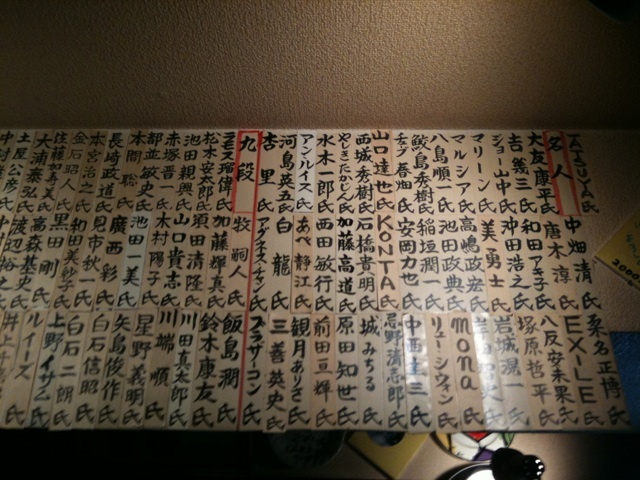 TATSUYA氏
名人
大友康平氏
吉幾三氏
ジョー山中氏
マリーン氏
マルシア氏
八島順一氏
鮫島秀樹氏
春畑氏
山口達也氏
西城秀樹氏
やしきたかじん氏
水木一郎氏
アン・ルイス氏
河島英五氏
杏里氏
九段
ラモス瑠偉氏
松木安太郎氏
池田親興氏
赤塚晋一氏
都並敏史氏
本間聡氏
長崎政道氏
本宮治之氏
金石昭人氏
佐藤加真美氏
大浦泰弘氏
土屋公彦氏
中畑清氏
唐木淳氏
和田アキ子氏
沖田浩之氏
美勇士氏
高嶋政宏氏
池田政典氏
稲垣潤一氏
安岡力也氏
KONTA氏
石橋貴明氏
加藤高道氏
西田敏行氏
あべ静江氏
白龍氏
アグネス・チャン氏
牧嗣人氏
加藤輝真氏
須田清隆氏
山口貴志氏
木村陽子氏
池田一美氏
廣西彩氏
見市秋一氏
和田美紗子氏
黒田剛氏
高森基史氏
渡辺裕之氏
桑名正博氏
EXILE氏
八反安未果氏
塚原哲平氏
岩城滉一氏
mona氏
リューシフィン氏
中西圭三氏
忌野清志郎氏
城みちる氏
原田知世氏
前田亘輝氏
観月ありさ氏
三善英史氏
ブラザーコーン氏
飯島潤氏
鈴木康友氏
川田真太郎氏
川端順氏
星野義明氏
矢島俊作氏
白石信昭氏
白石二朗氏
上野イサム氏
ルイーズ氏